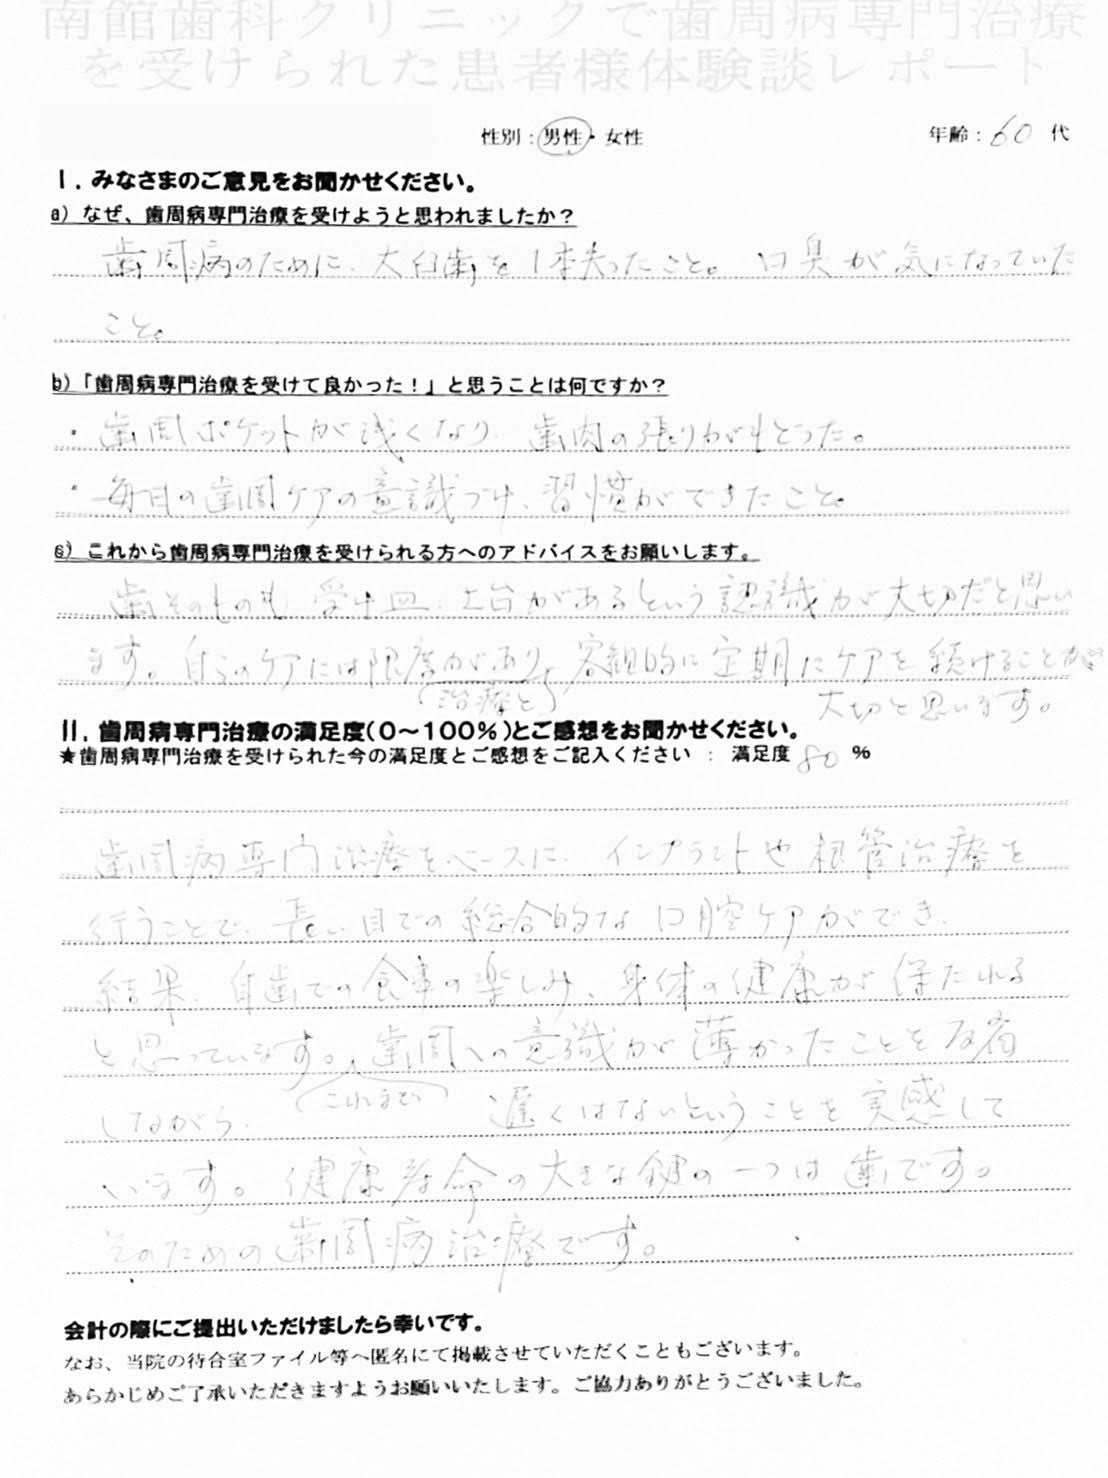 南館歯科クリニックで歯周病専門治療
を受けられた患者様体験談レポート
性別：男性・女性 年齢：60 代
Ⅰ．みなさまのご意見をお聞かせください。
a）なぜ、歯周病専門治療を受けようと思われましたか？
歯周病のために、大臼歯を1本失ったこと。口臭が気になっていた
こと。
b）「歯周病専門治療を受けて良かった！」と思うことは何ですか？
・歯周ポケットが浅くなり、歯肉の張りがもどった。
・毎日の歯周ケアの意識づけ、習慣ができたこと。
c）これから歯周病専門治療を受けられる方へのアドバイスをお願いします。
歯そのものも受け皿、土台があるという認識が大切だと思い
ます。自らのケアには限度があり、客観的に定期にケアを続けることが
（治療と） 大切と思います。
Ⅱ．歯周病専門治療の満足度（0～100％）とご感想をお聞かせください。
★歯周病専門治療を受けられた今の満足度とご感想をご記入ください ： 満足度 80 ％
歯周病専門治療をベースに、インプラントや根管治療を
行うことで、長い目での総合的な口腔ケアができ、
結果、自歯での食事の楽しみ、身体の健康が保たれる
と思っています。歯周への意識が薄かったことを反省
（これまで）
しながら、遅くはないということを実感して
います。健康寿命の大きな鍵の一つは歯です。
そのための歯周病治療です。
会計の際にご提出いただけましたら幸いです。
なお、当院の待合室ファイル等へ匿名にて掲載させていただくこともございます。
あらかじめご了承いただきますようお願いいたします。ご協力ありがとうございました。